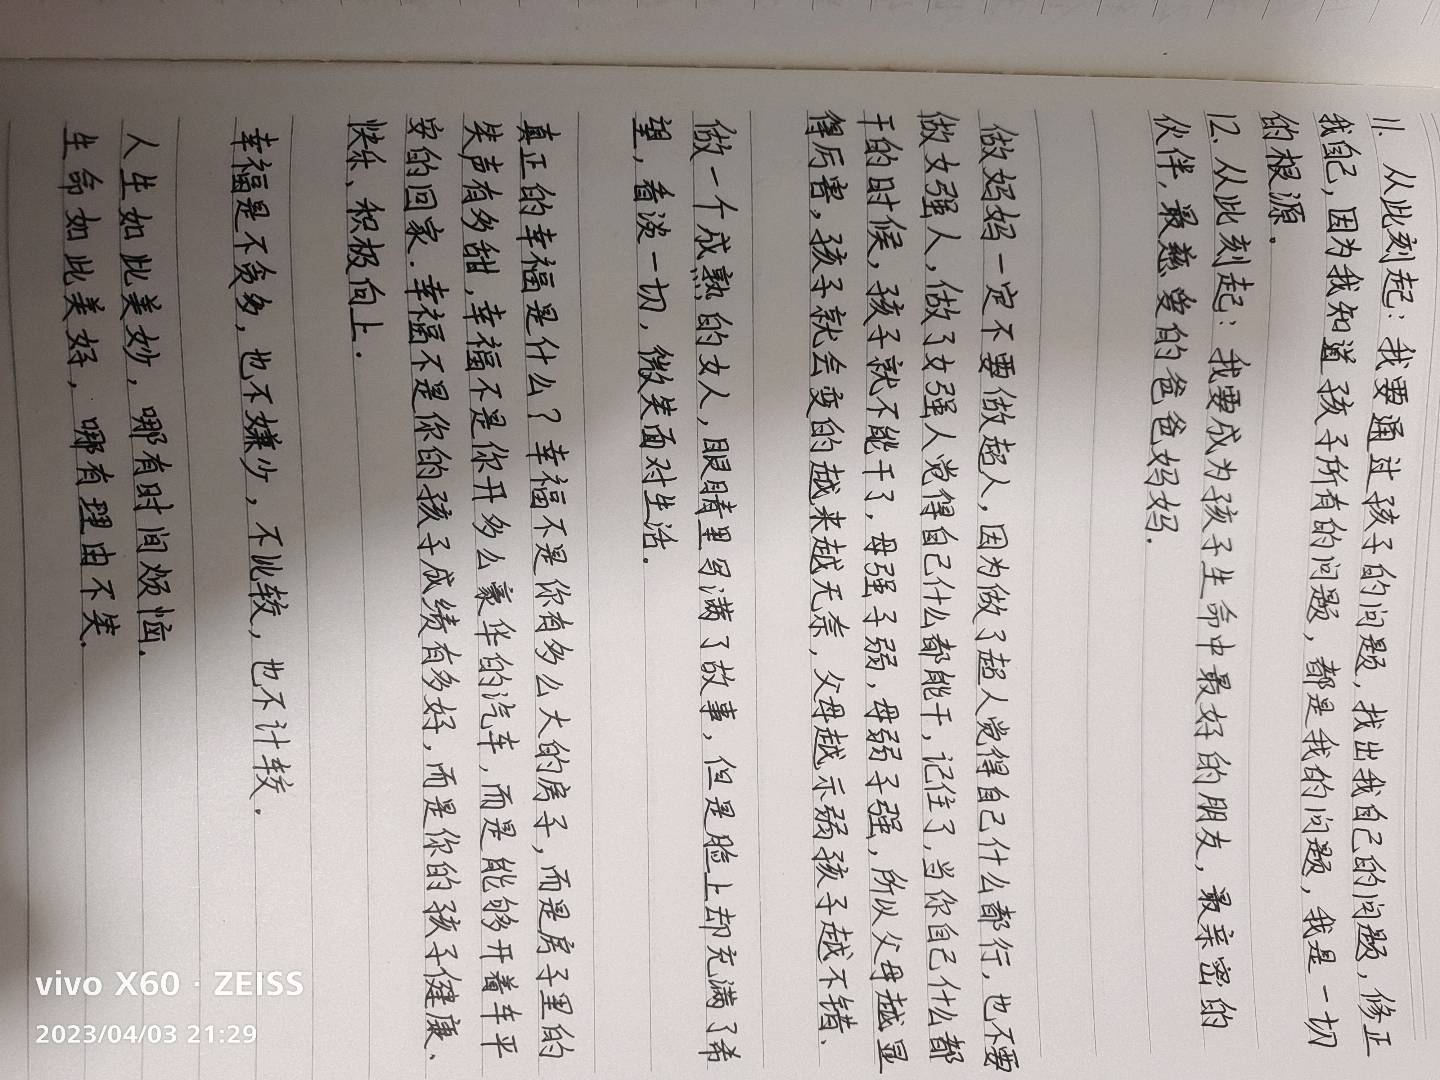 11. 从此刻起：我要通过孩子的问题，找出我自己的问题，修正
我自己，因为我知道孩子所有的问题，都是我的问题，我是一切
的根源。
12. 从此刻起：我要成为孩子生命中最好的朋友，最亲密的
伙伴，最慈爱的爸爸妈妈.
做妈妈一定不要做超人，因为做了超人觉得自己什么都行，也不要
做女强人，做了女强人觉得自己什么都能干，记住了，当你自己什么都
干的时候，孩子就不能干了，母强子弱，母弱子强，所以父母越显
得厉害，孩子就会变的越来越无奈，父母越示弱孩子越不错.
做一个成熟的女人，眼睛里写满了故事，但是脸上却充满了希
望，看淡一切，微笑面对生活.
真正的幸福是什么？幸福不是你有多么大的房子，而是房子里的
笑声有多甜，幸福不是你开多么豪华的汽车，而是能够开着车平
安的回家.幸福不是你的孩子成绩有多好，而是你的孩子健康、
快乐、积极向上.
幸福是不贪多，也不嫌少，不比较，也不计较.
人生如此美妙，哪有时间烦恼.
生命如此美好，哪有理由不笑.
vivo X60 · ZEISS
2023/04/03 21:29